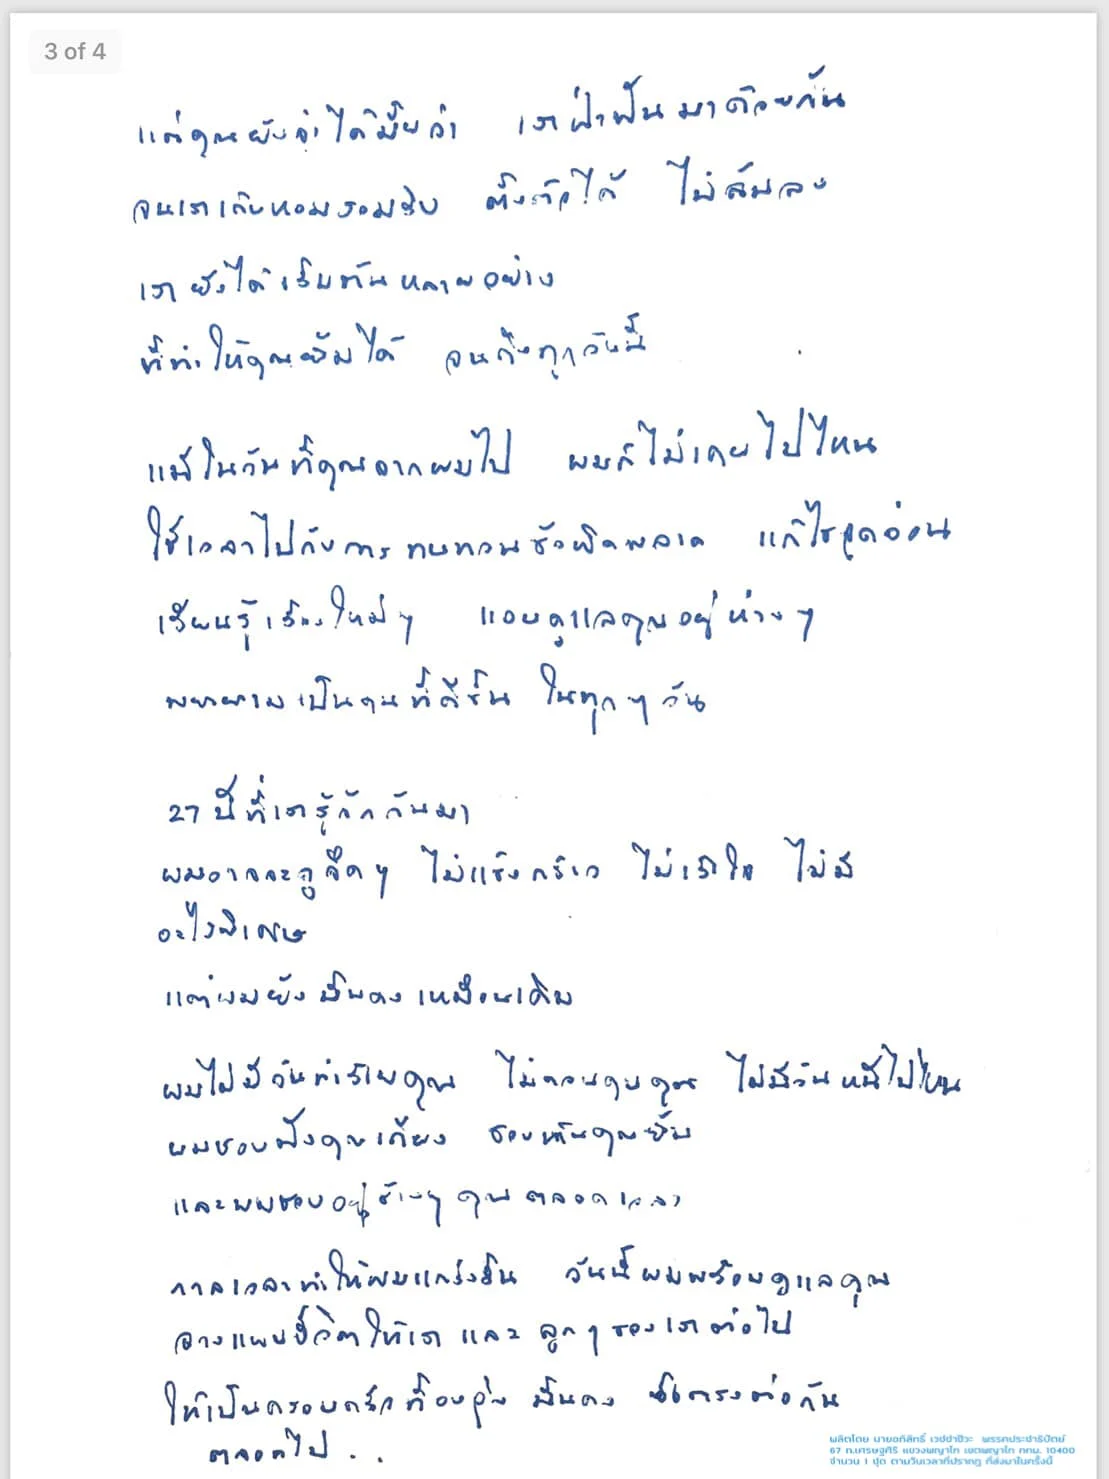 3 of 4
แต่คุณยังจำได้มั้ยว่า เราฝ่าฟันมาด้วยกัน
จนเราเก็บหอมรอมริบ ตั้งตัวได้ ไม่ล้มลง
เรายังได้เริ่มต้นหลายอย่าง
ที่ทำให้คุณยิ้มได้ จนถึงทุกวันนี้
แม้ในวันที่คุณจากผมไป ผมก็ไม่เคยไปไหน
ใช้เวลาไปกับการทบทวนข้อผิดพลาด แก้ไขจุดอ่อน
เรียนรู้เรื่องใหม่ๆ แอบดูแลคุณอยู่ห่างๆ
พยายามเป็นคนที่ดีขึ้น ในทุกๆวัน
27 ปีที่เรารู้จักกันมา
ผมอาจจะดูจืดๆ ไม่แข็งกร้าว ไม่เร้าใจ ไม่มี
อะไรพิเศษ
แต่ผมยังมั่นคงเหมือนเดิม
ผมไม่มีวันทำร้ายคุณ ไม่ควบคุมคุณ ไม่มีวันหนีไปไหน
ผมชอบฟังคุณเถียง ชอบเห็นคุณยิ้ม
และผมชอบอยู่ข้างๆคุณตลอดเวลา
กาลเวลาทำให้ผมแกร่งขึ้น วันนี้ผมพร้อมดูแลคุณ
วางแผนชีวิตให้เรา และ ลูกๆของเราต่อไป
ให้เป็นครอบครัวที่อบอุ่น มั่นคง ซื่อตรงต่อกัน
ตลอดไป . .
ผลิตโดย นายอภิสิทธิ์ เวชชาชีวะ พรรคประชาธิปัตย์
67 ถ.เศรษฐศิริ แขวงพญาไท เขตพญาไท กทม. 10400
จำนวน 1 ชุด ตามวันเวลาที่ปรากฏ ที่ส่งมาในครั้งนี้